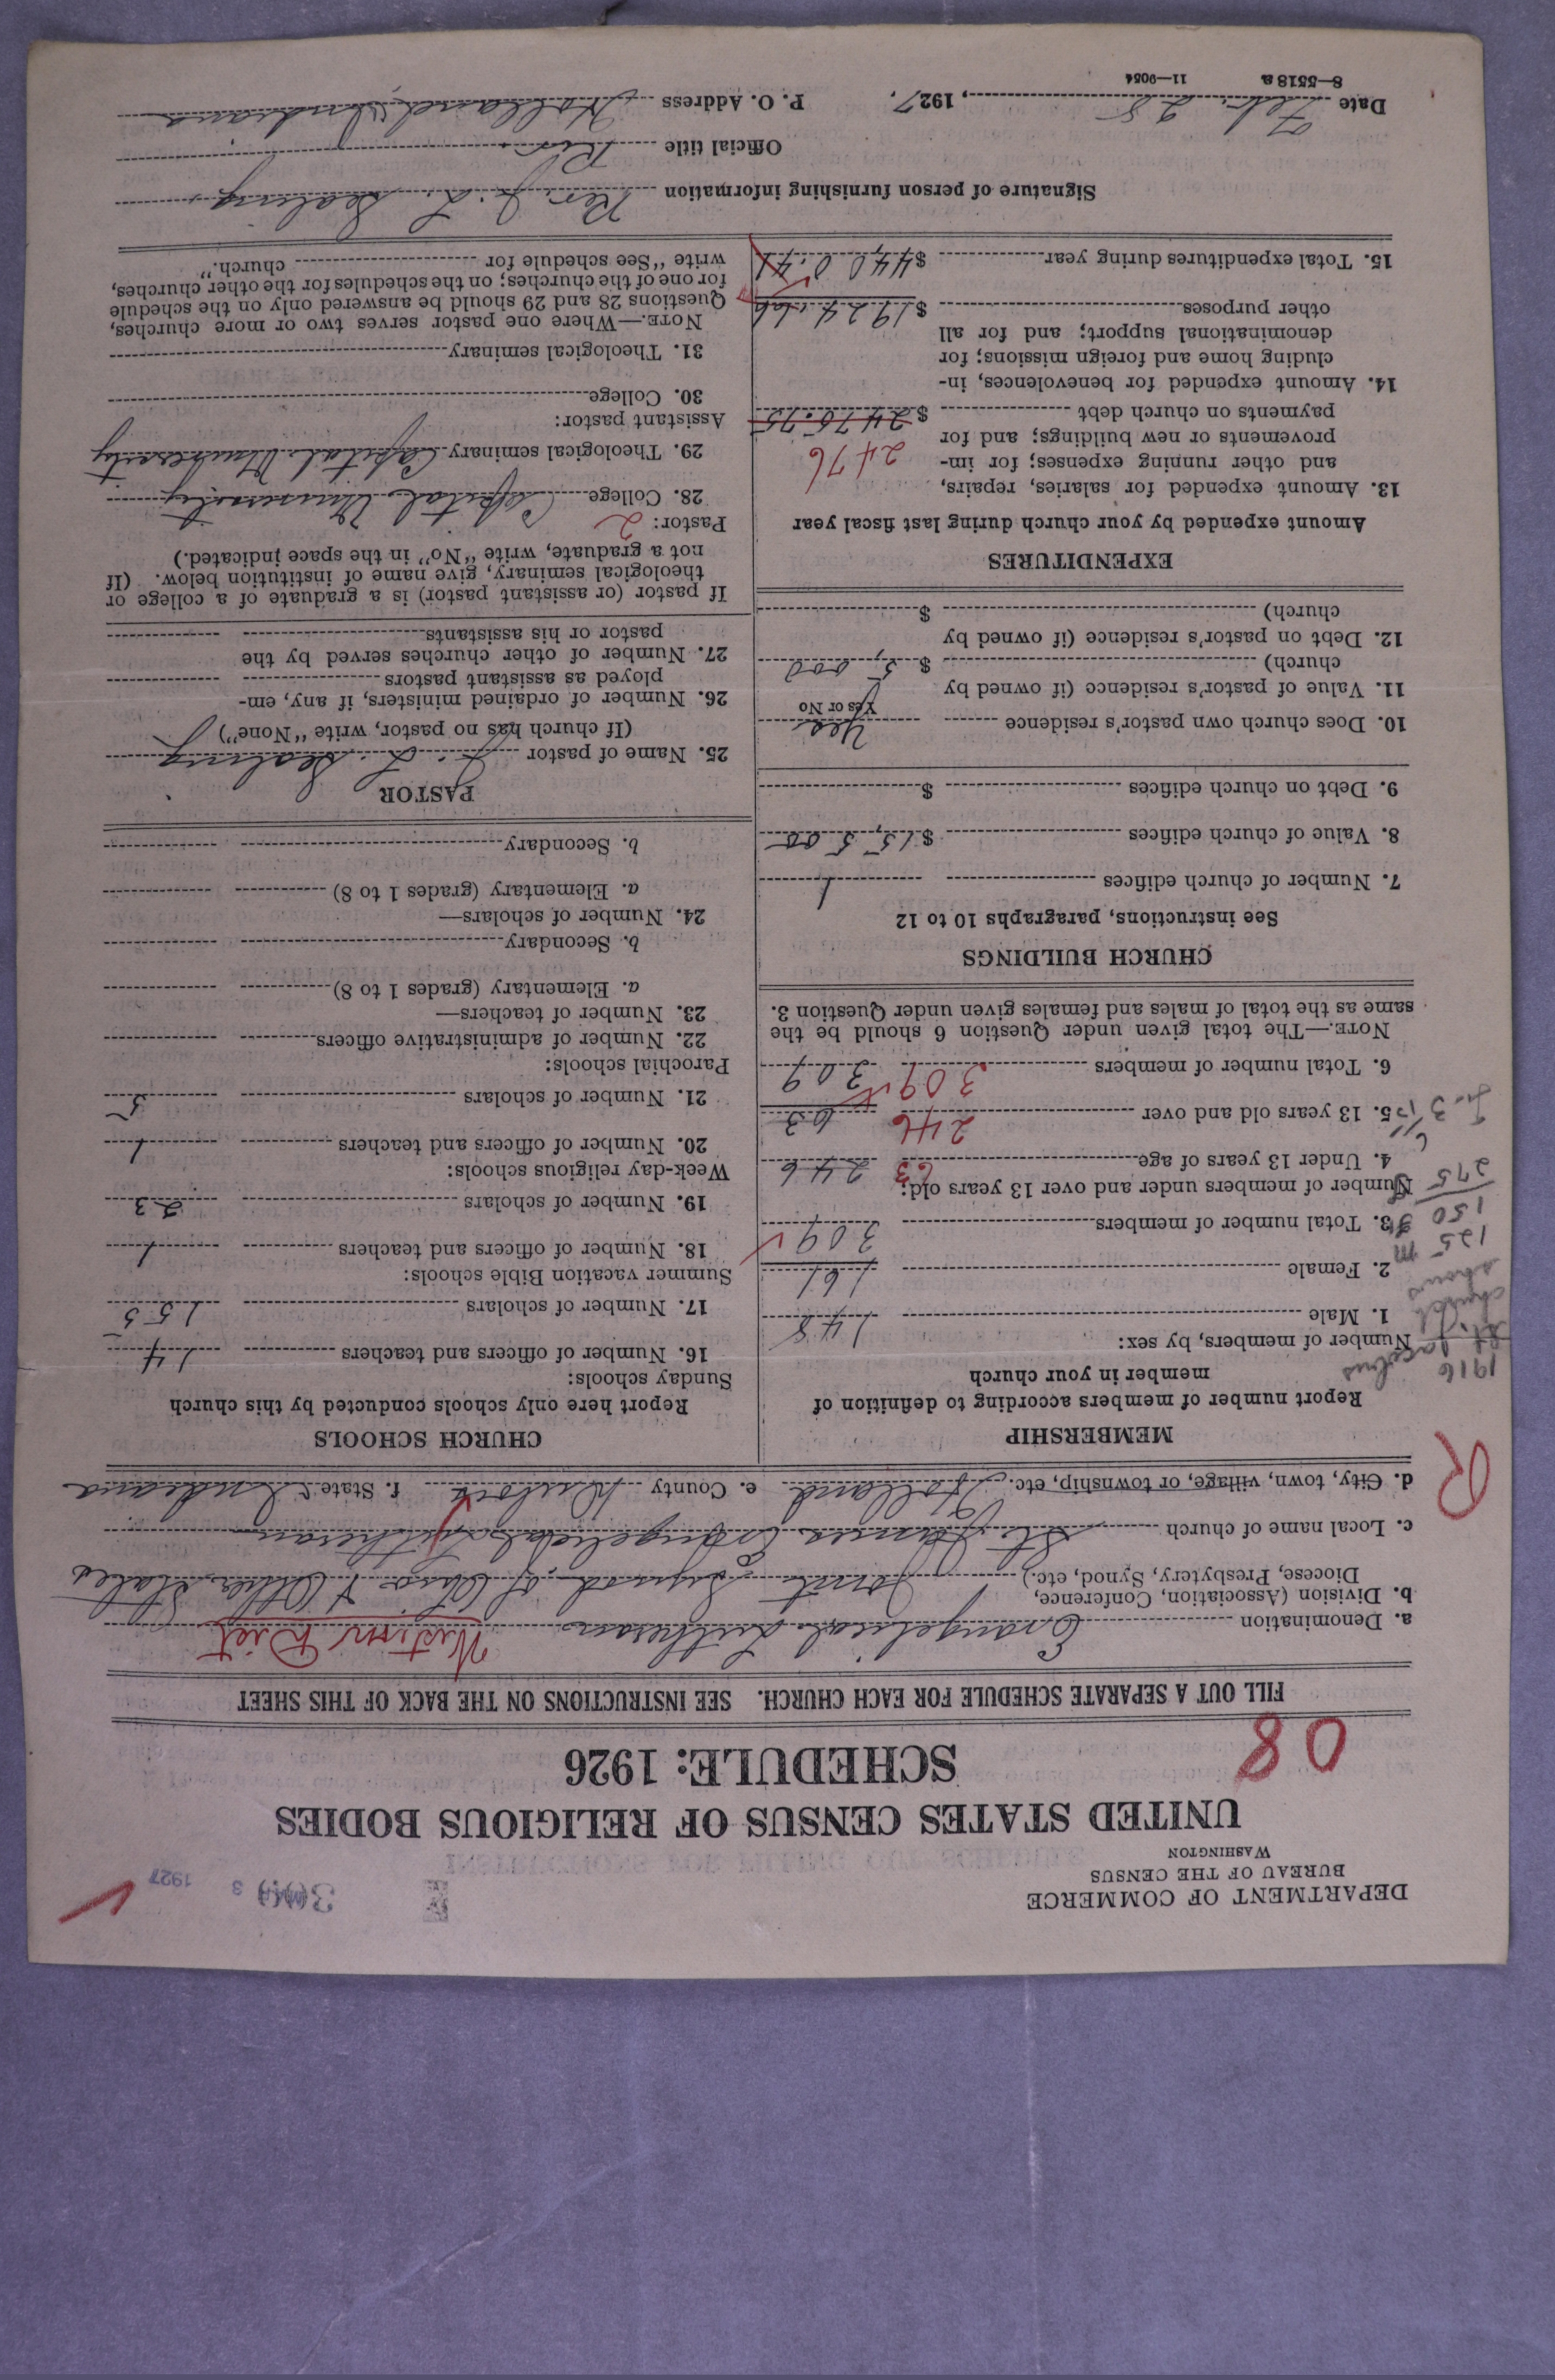 DEPARTMENT OF COMMERCE
BUREAU OF THE CENSUS
WASHINGTON
3 1927
UNITED STATES CENSUS OF RELIGIOUS BODIES
SCHEDULE: 1926
08
FILL OUT A SEPARATE SCHEDULE FOR EACH CHURCH. SEE INSTRUCTIONS ON THE BACK OF THIS SHEET
a. Denomination Evangelical Lutheran Western Dist
b. Division (Association, Conference,
Diocese, Presbytery, Synod, etc.) Joint Synod of Ohio & Other States
c. Local name of church St. James Evangelical Lutheran
d. City, town, village, or township, etc. Holland e. County Dubois f. State Indiana
R
MEMBERSHIP
Report number of members according to definition of
member in your church
1916
St. Jacobus
church
shows
125 m
150 f
275
Number of members, by sex:
1. Male 148
2. Female 161
3. Total number of members 309
Number of members under and over 13 years old:
4. Under 13 years of age 63 246
5. 13 years old and over 246 63
6. Total number of members 309 309
NOTE.—The total given under Question 6 should be the
same as the total of males and females given under Question 3.
CHURCH BUILDINGS
See instructions, paragraphs 10 to 12
7. Number of church edifices 1
8. Value of church edifices $15,500
9. Debt on church edifices $
10. Does church own pastor's residence Yes
Yes or No
11. Value of pastor's residence (if owned by
church) $5,000
12. Debt on pastor's residence (if owned by
church) $
EXPENDITURES
Amount expended by your church during last fiscal year
13. Amount expended for salaries, repairs,
and other running expenses; for im-
provements or new buildings; and for 2476
payments on church debt $2475.75
14. Amount expended for benevolences, in-
cluding home and foreign missions; for
denominational support; and for all
other purposes $1924.66
15. Total expenditures during year $4400.41
CHURCH SCHOOLS
Report here only schools conducted by this church
Sunday schools:
16. Number of officers and teachers 14
17. Number of scholars 155
Summer vacation Bible schools:
18. Number of officers and teachers 1
19. Number of scholars 23
Week-day religious schools:
20. Number of officers and teachers 1
21. Number of scholars 5
Parochial schools:
22. Number of administrative officers
23. Number of teachers—
a. Elementary (grades 1 to 8)
b. Secondary
24. Number of scholars—
a. Elementary (grades 1 to 8)
b. Secondary
PASTOR
25. Name of pastor J. L. Sealing
(If church has no pastor, write "None")
26. Number of ordained ministers, if any, em-
ployed as assistant pastors
27. Number of other churches served by the
pastor or his assistants
If pastor (or assistant pastor) is a graduate of a college or
theological seminary, give name of institution below. (If
not a graduate, write "No" in the space indicated.)
Pastor: 2
28. College Capital University
29. Theological seminary Capital University
Assistant pastor:
30. College
31. Theological seminary
NOTE.—Where one pastor serves two or more churches,
Questions 28 and 29 should be answered only on the schedule
for one of the churches; on the schedules for the other churches,
write "See schedule for church."
Signature of person furnishing information Rev. J. L. Sealing
Official title Rev.
Date Feb. 28, 1927. P. O. Address Holland, Indiana
8—5518a 11—9054